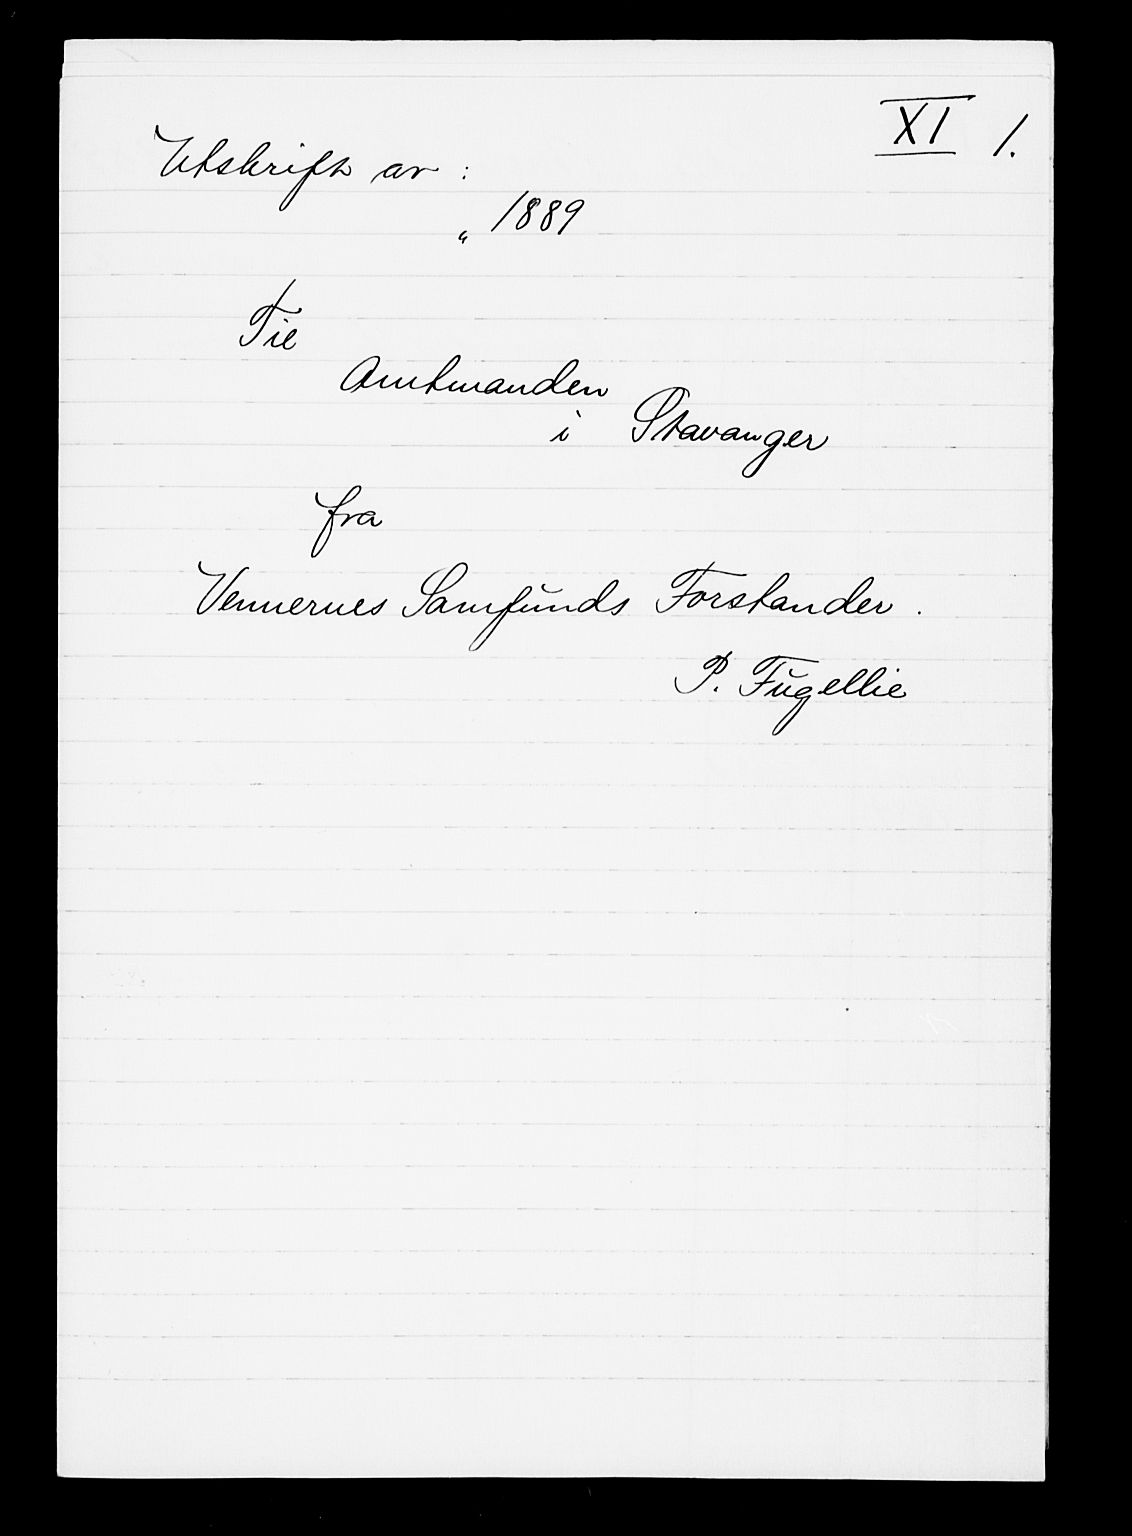 XI 1.
Utskrift av :
„ 1889
Til
Amtmanden
i Stavanger
fra
Vennernes Samfunds Forstander .
P. Fugellie